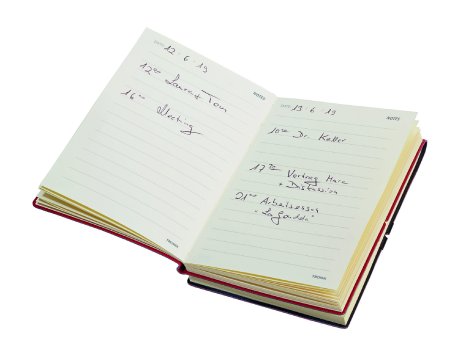 DATE 12 · 6 · 19
NOTES
12 00 Laurent Tom
16 00 Meeting
TROIKA
DATE 13 · 6 · 19
NOTES
10 00 Dr. Keller
17 30 Vortrag Marc
+ Diskussion
21 00 Arbeitsessen
TROIKA